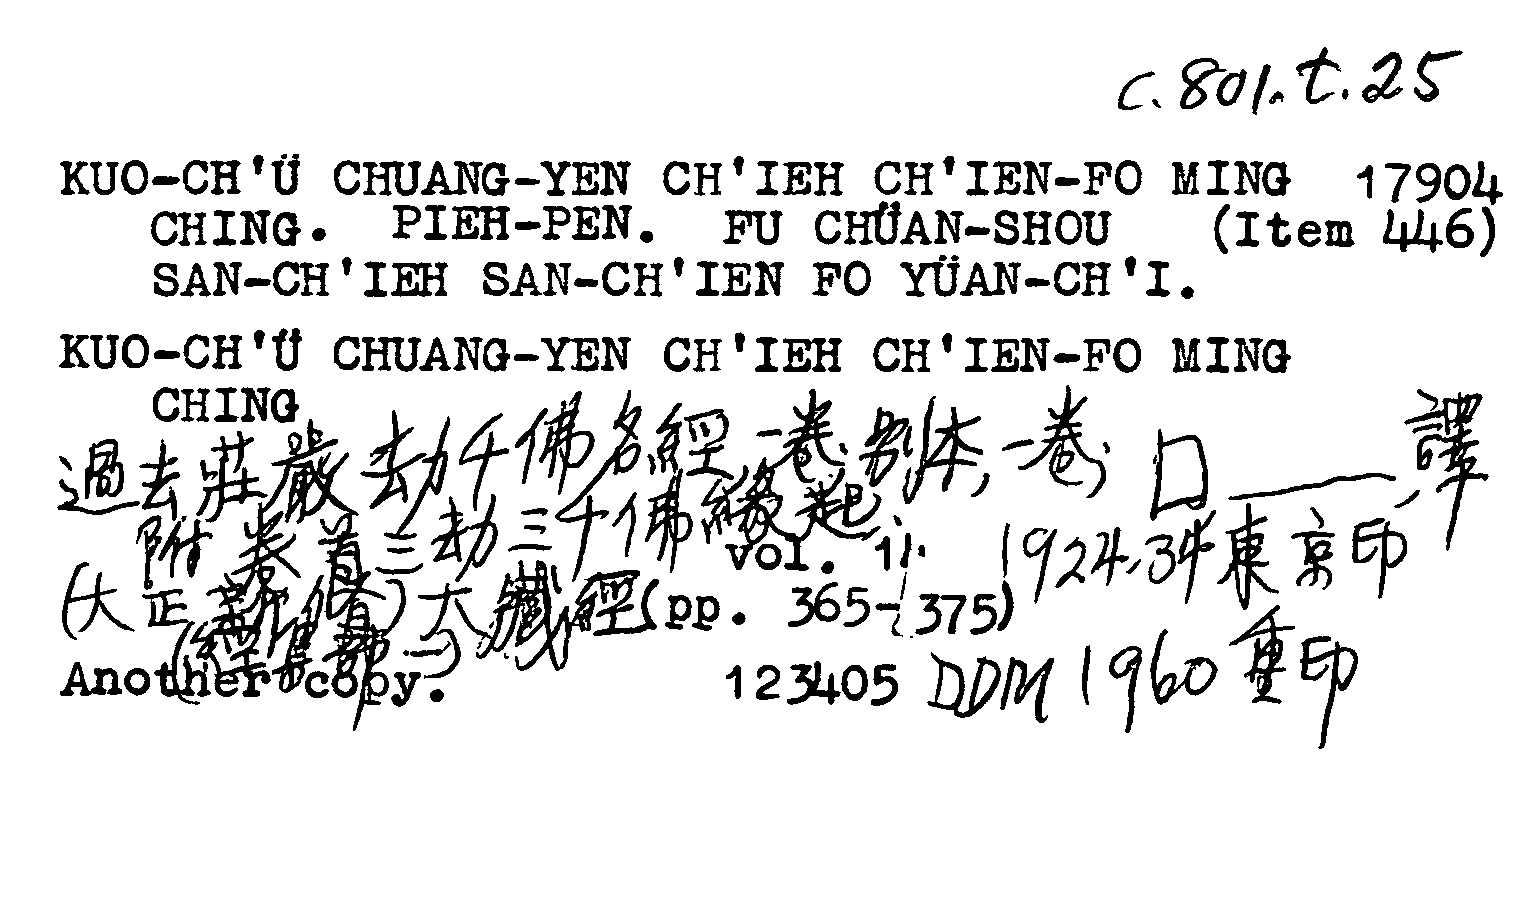 c.801.t.25
KUO-CH'Ü CHUANG-YEN CH'IEH CH'IEN-FO MING 17904
CHING. PIEH-PEN. FU CHÜAN-SHOU (Item 446)
SAN-CH'IEH SAN-CH'IEN FO YÜAN-CH'I.
KUO-CH'Ü CHUANG-YEN CH'IEH CH'IEN-FO MING
CHING
過去莊嚴劫千佛名經,一卷,別本,一卷, 口 譯
附 卷首三劫三千佛緣起, vol. 14 1924-34東京印
(大正新修)大藏經(pp. 365-375)
(經集部一)
Another copy. 123405 DDM 1960 重印